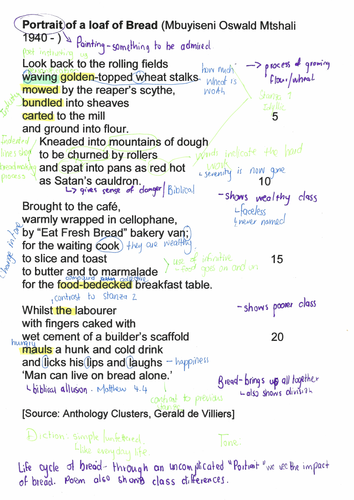 Portrait of a loaf of Bread (Mbuyiseni Oswald Mtshali
1940 - )
Painting - something to be admired
Look back to the rolling fields
process of growing
flour/wheat
waving golden-topped wheat stalks
how much
wheat is
worth
mowed by the reaper's scythe,
bundled into sheaves
Stanza 1
Idyllic
carted to the mill 5
and ground into flour.
Indented
lines show
breadmaking
process
Kneaded into mountains of dough
to be churned by rollers
Words indicate the hard
work
and spat into pans as red hot
serenity is now gone
as Satan's cauldron. 10
gives sense of danger/Biblical
shows wealthy class
faceless
never named
Brought to the café,
warmly wrapped in cellophane,
by "Eat Fresh Bread" bakery van;
change in tone
for the waiting cook
they are wealthy
to slice and toast 15
use of infinitive
to butter and to marmalade
compound adjective
for the food-bedecked breakfast table.
contrast to stanza 2
Whilst the labourer
shows poorer class
with fingers caked with
wet cement of a builder's scaffold 20
hungry
mauls a hunk and cold drink
and licks his lips and laughs
happiness
'Man can live on bread alone.'
biblical allusion - Matthew 4.4
contrast to previous
Bread - brings us all together
also shows division
[Source: Anthology Clusters, Gerald de Villiers]
Diction: simple
like everyday life.
Tone:
Life cycle of bread - through an uncomplicated "Portrait" we see the impact
of bread. Poem also shows class differences.